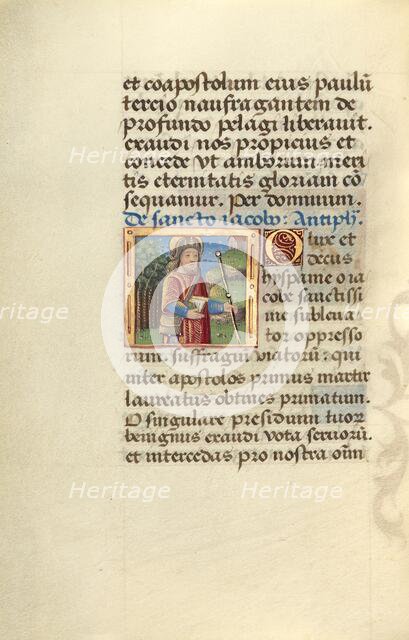 et coapostolum eius paulū
tercio naufragantem de
profundo pelagi liberavit.
exaudi nos propicius et
concede vt amborum meri
tis eternitatis gloriam cō
sequamur. per dominum.
De sancto iacobo: Antiph̄.
O lux et
decus
hyspanie o ia
cobe sanctissi
me subleva
tor oppresso
rum. suffragiū viatorū: qui
inter apostolos primus martir
laureatus obtines primatum.
O singulare presidium tuorꝫ
benignus exaudi vota servorū.
et intercedas pro nostra om̄
Heritage
Heritage
Heritage
Heritage
Heritage
Heritage